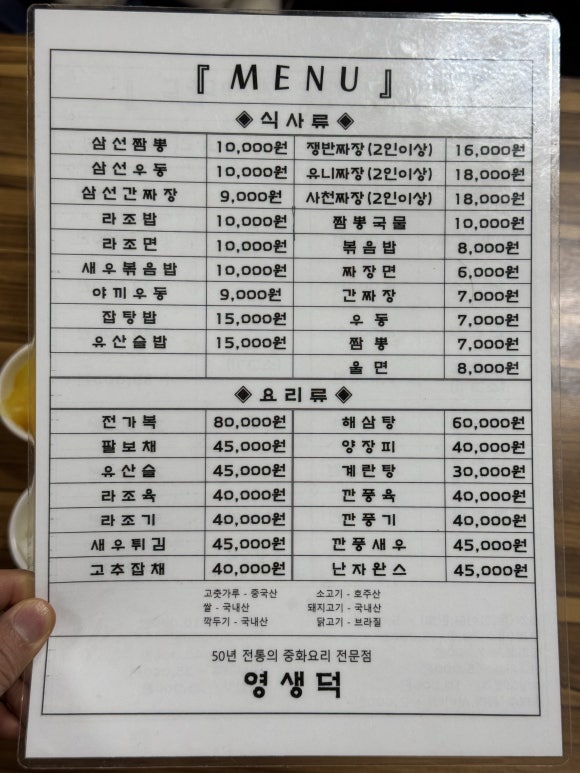 『 MENU 』
◈ 식사류 ◈
삼선짬뽕 10,000원 쟁반짜장(2인이상) 16,000원
삼선우동 10,000원 유니짜장(2인이상) 18,000원
삼선간짜장 9,000원 사천짜장(2인이상) 18,000원
라조밥 10,000원 짬뽕국물 10,000원
라조면 10,000원 볶음밥 8,000원
새우볶음밥 10,000원 짜장면 6,000원
야끼우동 9,000원 간짜장 7,000원
잡탕밥 15,000원 우동 7,000원
유산슬밥 15,000원 짬뽕 7,000원
울면 8,000원
◈ 요리류 ◈
전가복 80,000원 해삼탕 60,000원
팔보채 45,000원 양장피 40,000원
유산슬 45,000원 계란탕 30,000원
라조육 40,000원 깐풍육 40,000원
라조기 40,000원 깐풍기 40,000원
새우튀김 45,000원 깐풍새우 45,000원
고추잡채 40,000원 난자완스 45,000원
고춧가루 - 중국산 소고기 - 호주산
쌀 - 국내산 돼지고기 - 국내산
깍두기 - 국내산 닭고기 - 브라질
50년 전통의 중화요리 전문점
영생덕